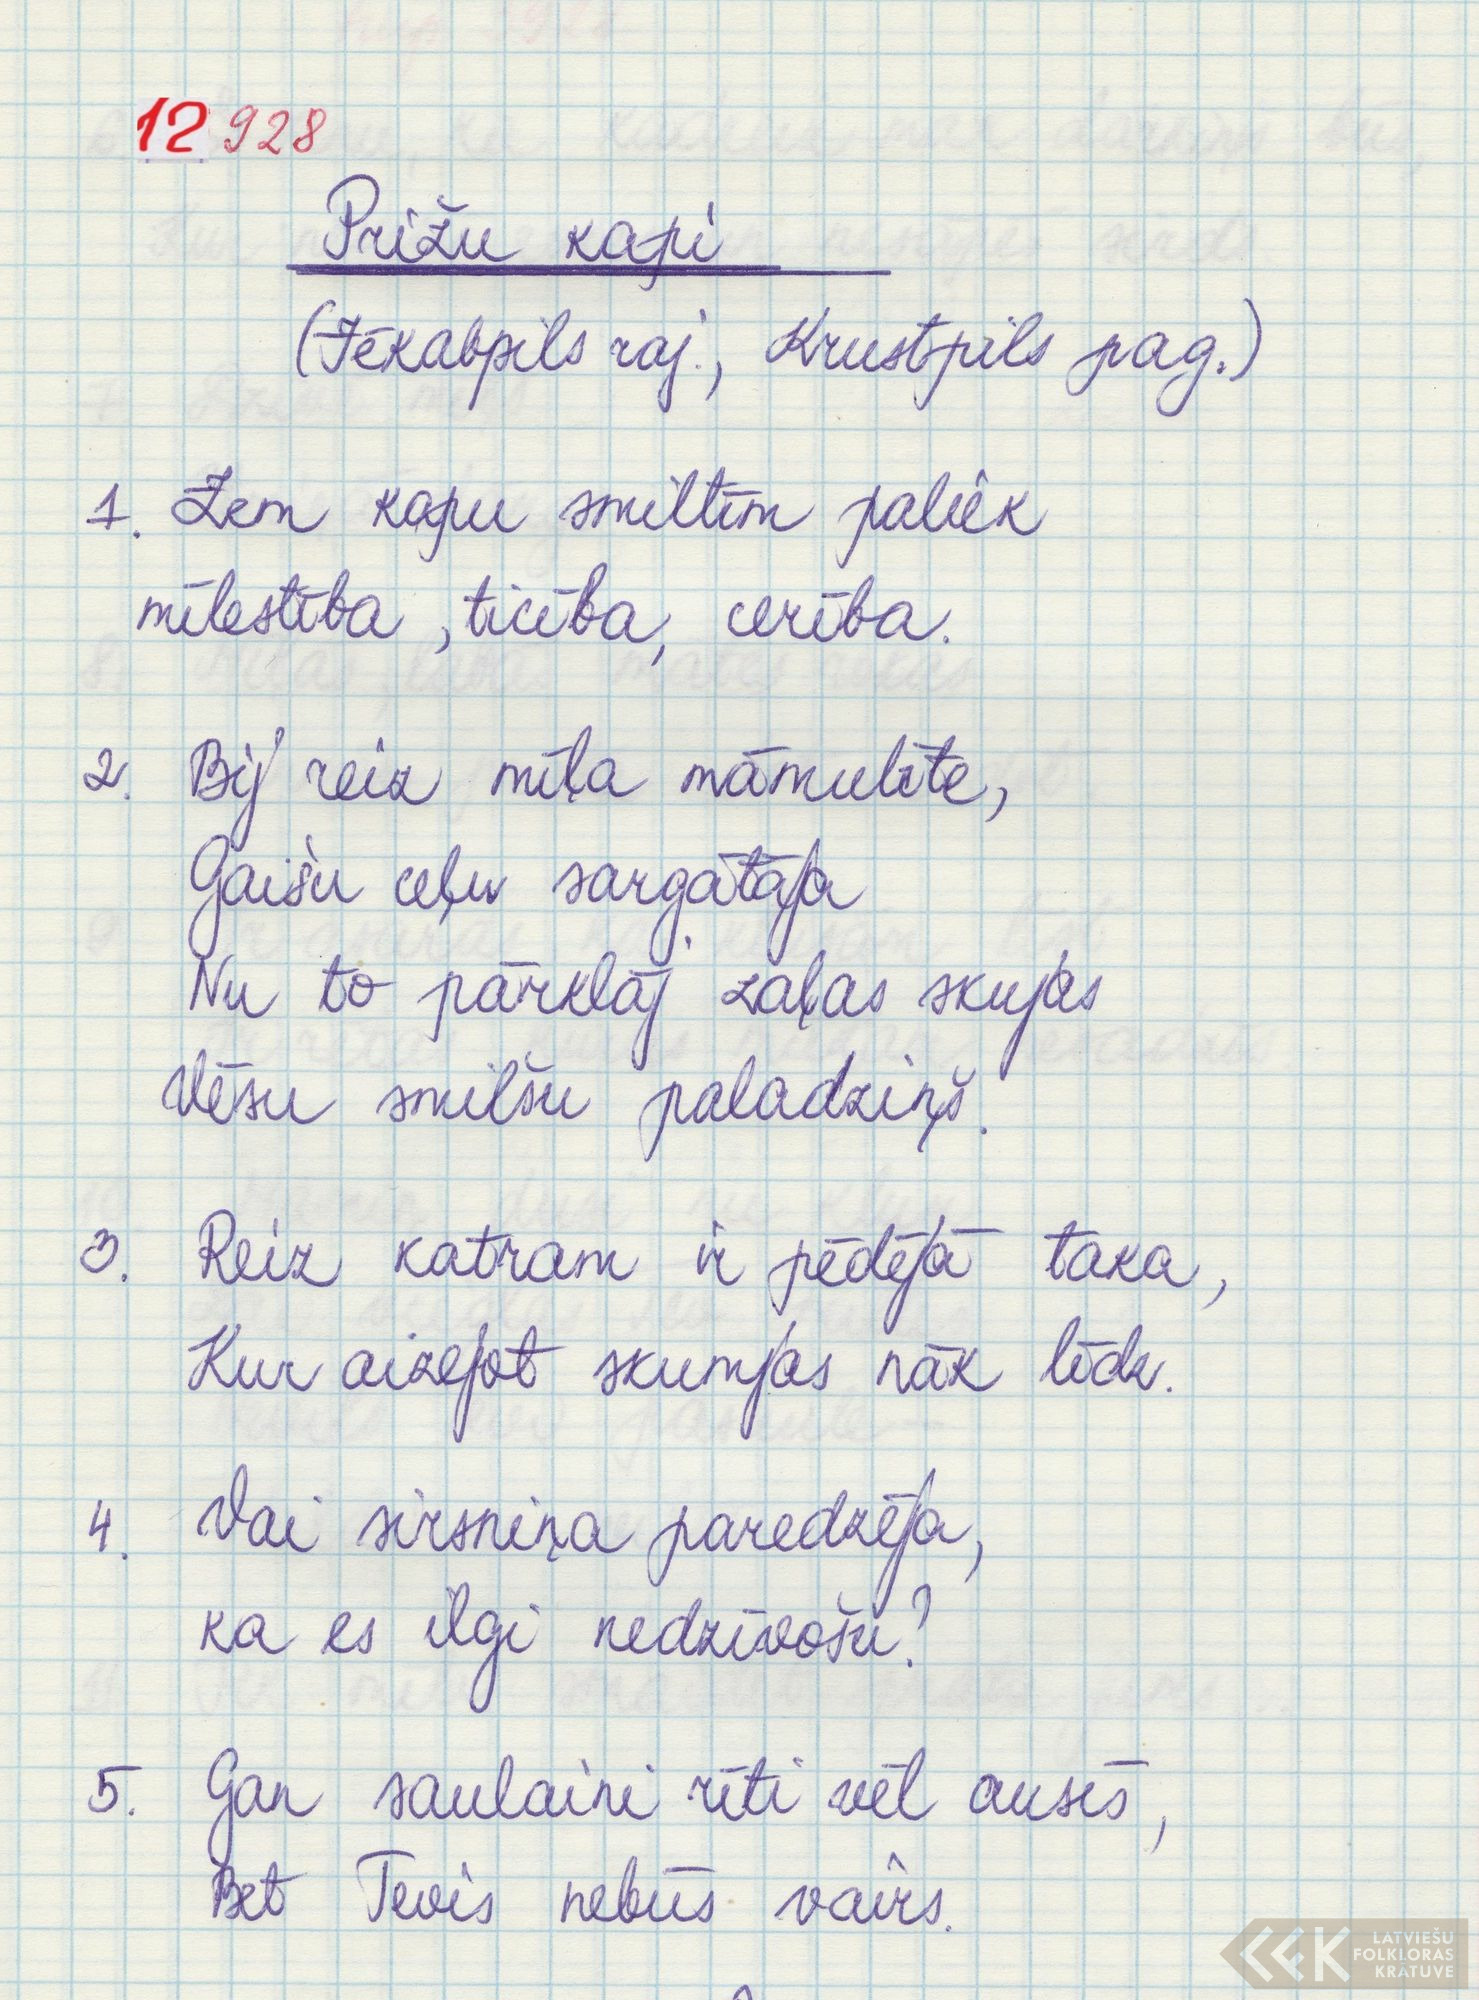 12 928
Prižu kapi
(Jēkabpils raj., Krustpils pag.)
1. Zem kapu smiltīm paliek
mīlestība, ticība, cerība.
2. Bij reiz mīļa māmulīte,
Gaišu ceļu sargātāja
Nu to pārklāj zaļas skujas
Vēsu smilšu paladziņš.
3. Reiz katram ir pēdējā taka,
Kur aizejot skumjas nāk līdz.
4. Vai sirsniņa paredzēja,
ka es ilgi nedzīvošu?
5. Gan saulaini rīti vēl ausīs,
Bet Tevis nebūs vairs.
LATVIEŠU
FOLKLORAS
KRĀTUVE